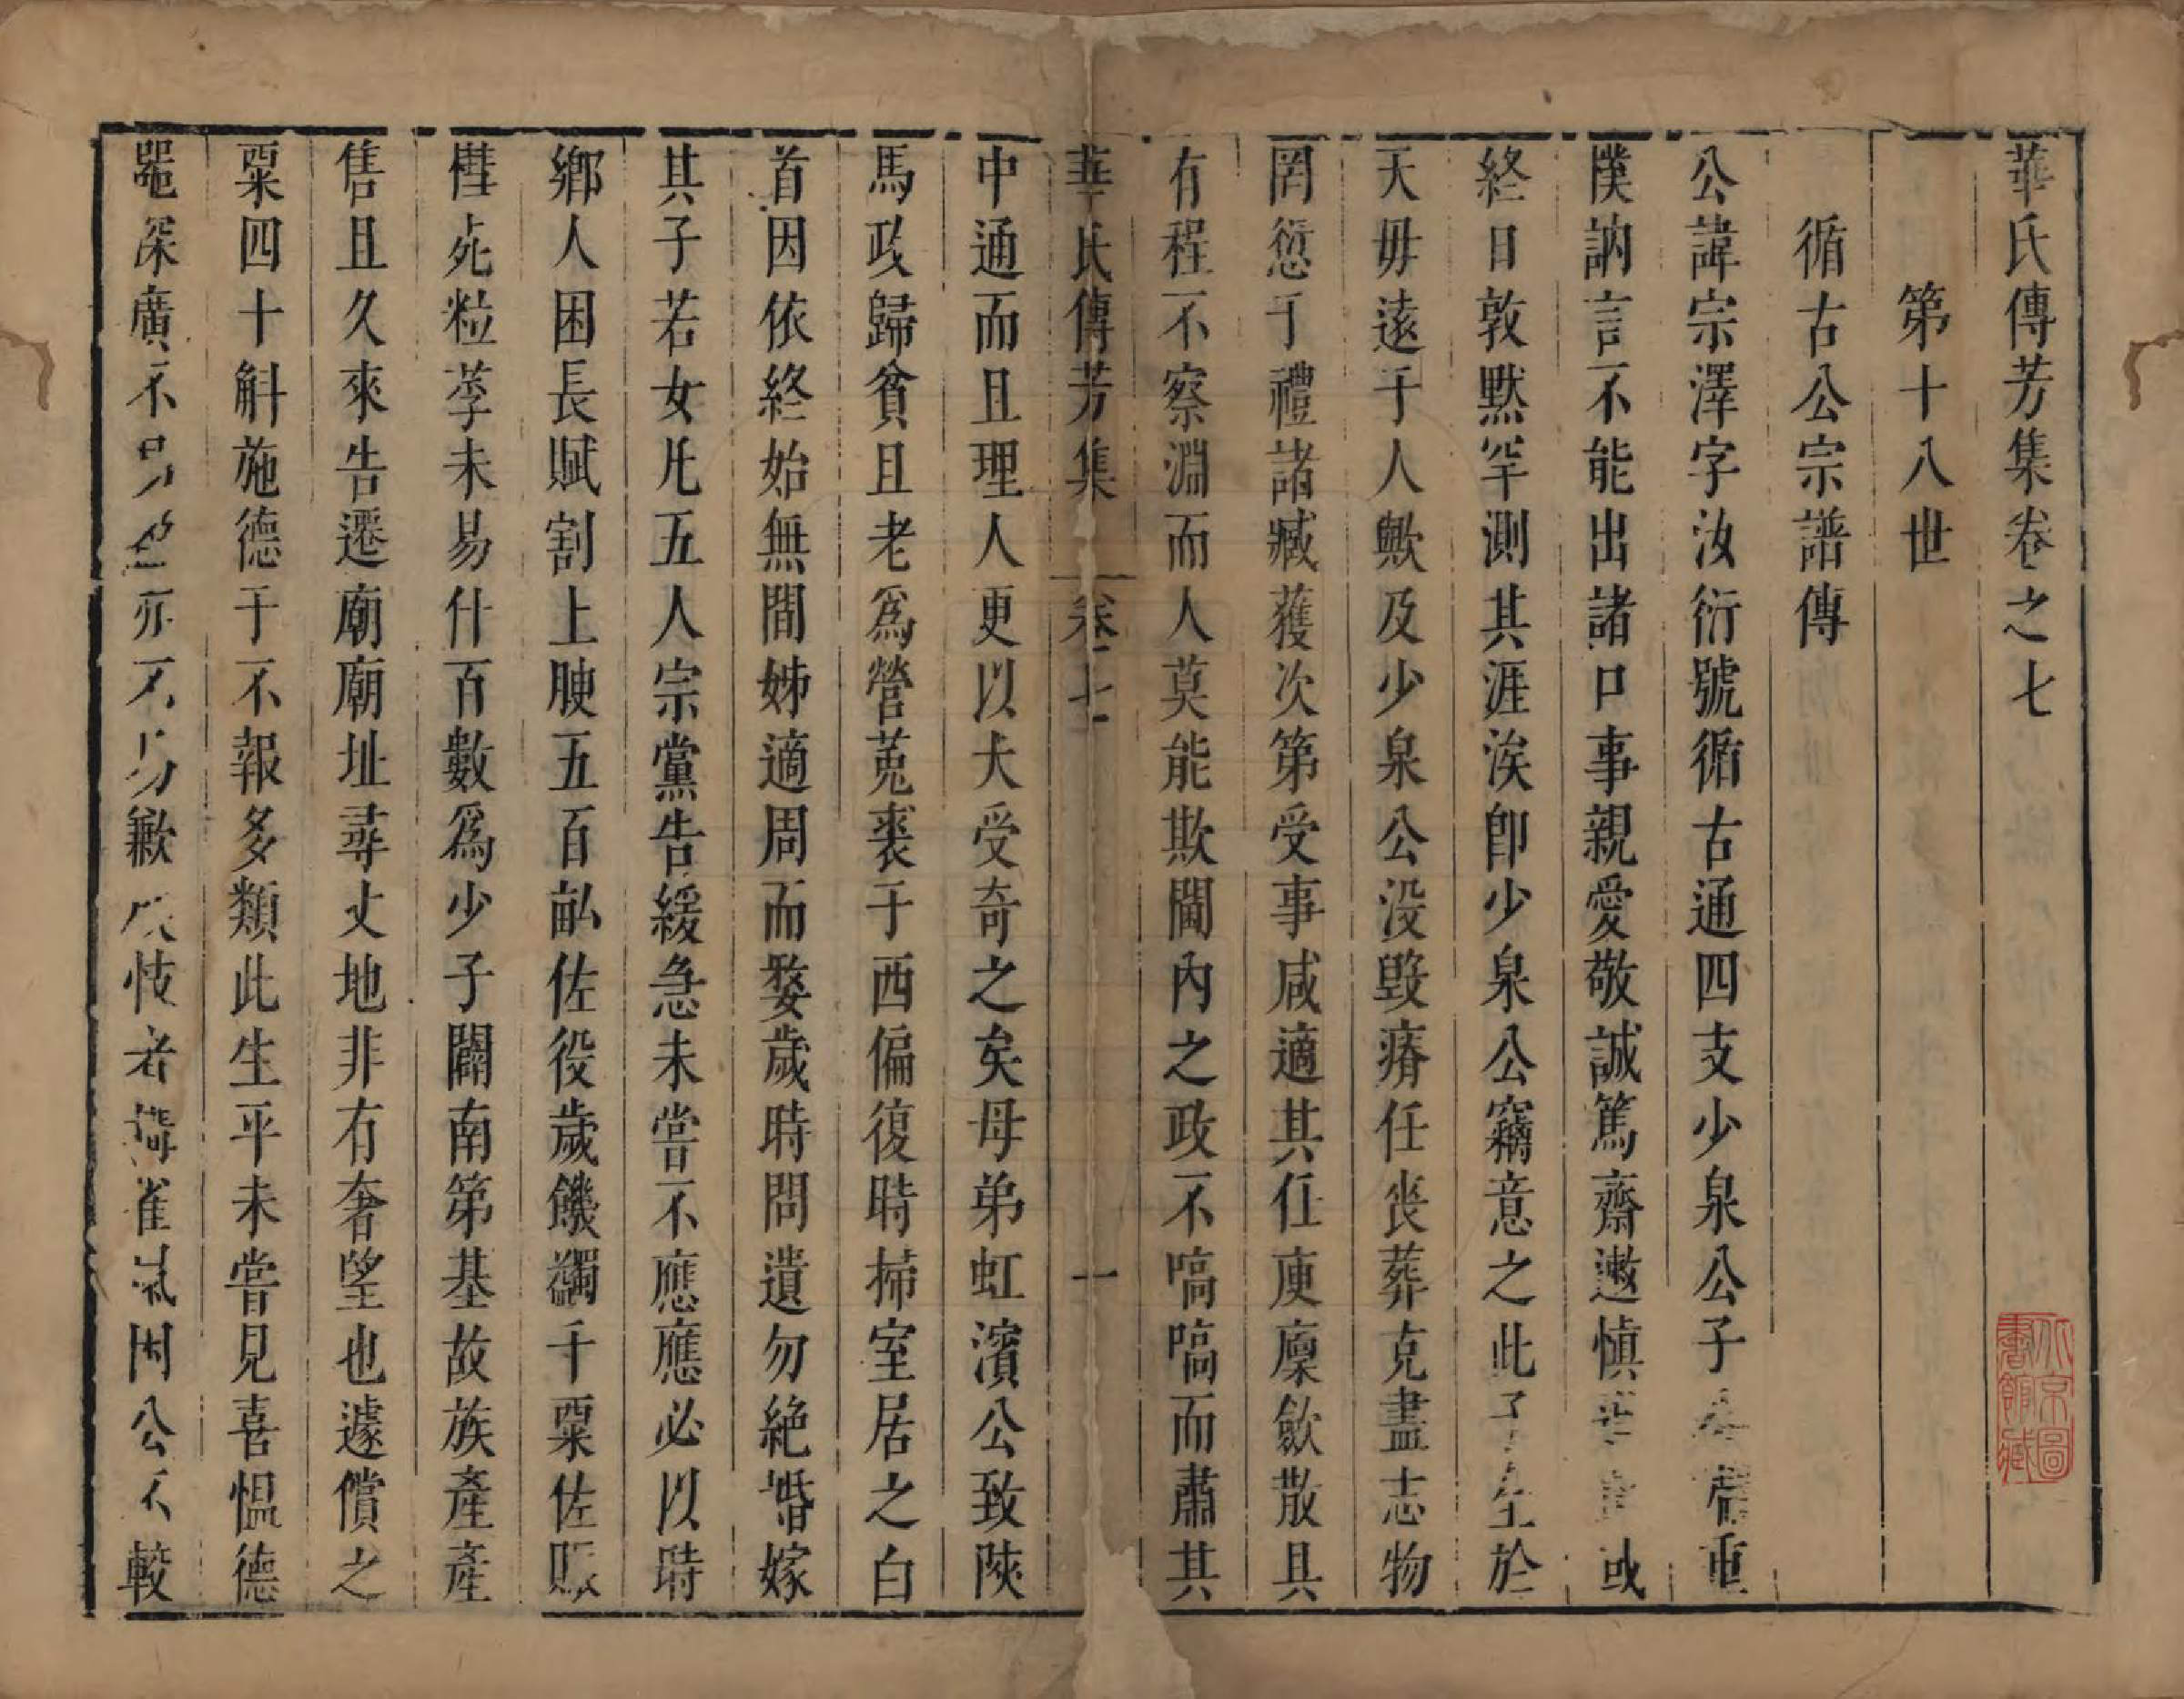 華氏傳芳集卷之七
第十八世
循古公宗譜傳
公諱宗澤字汝衍號循古通四支少泉公子 重
樸訥言不能出諸口事親愛敬誠篤齋遫慎 或
終日敦默罕測其涯涘卽少泉公竊意之此子 生於
天毋遠于人歟及少泉公没毀瘠任喪葬克盡志物
罔愆于禮諸臧獲次第受事咸適其任庾廩歛散具
有程不察淵而人莫能欺閫內之政不嗃嗃而肅其
華氏傳芳集 卷七 一
中通而且理人更以大受奇之矣母弟虹濱公致陝
馬政歸貧且老爲營菟裘于西偏復時掃室居之白
首因依終始無間姊適周而嫠歲時問遺勿絶婚嫁
其子若女凡五人宗黨告緩急未嘗不應應必以時
鄉人困長賦割上腴五百畝佐役歲饑蠲千粟佐賑
槥死粒莩未易什百數爲少子闢南第基故族產產
售且久來告遷廟廟址尋丈地非有奢望也遽償之
粟四十斛施德于不報多類此生平未嘗見喜愠德
器深廣不 亦不 歉 忮者 雀鼠困公不較